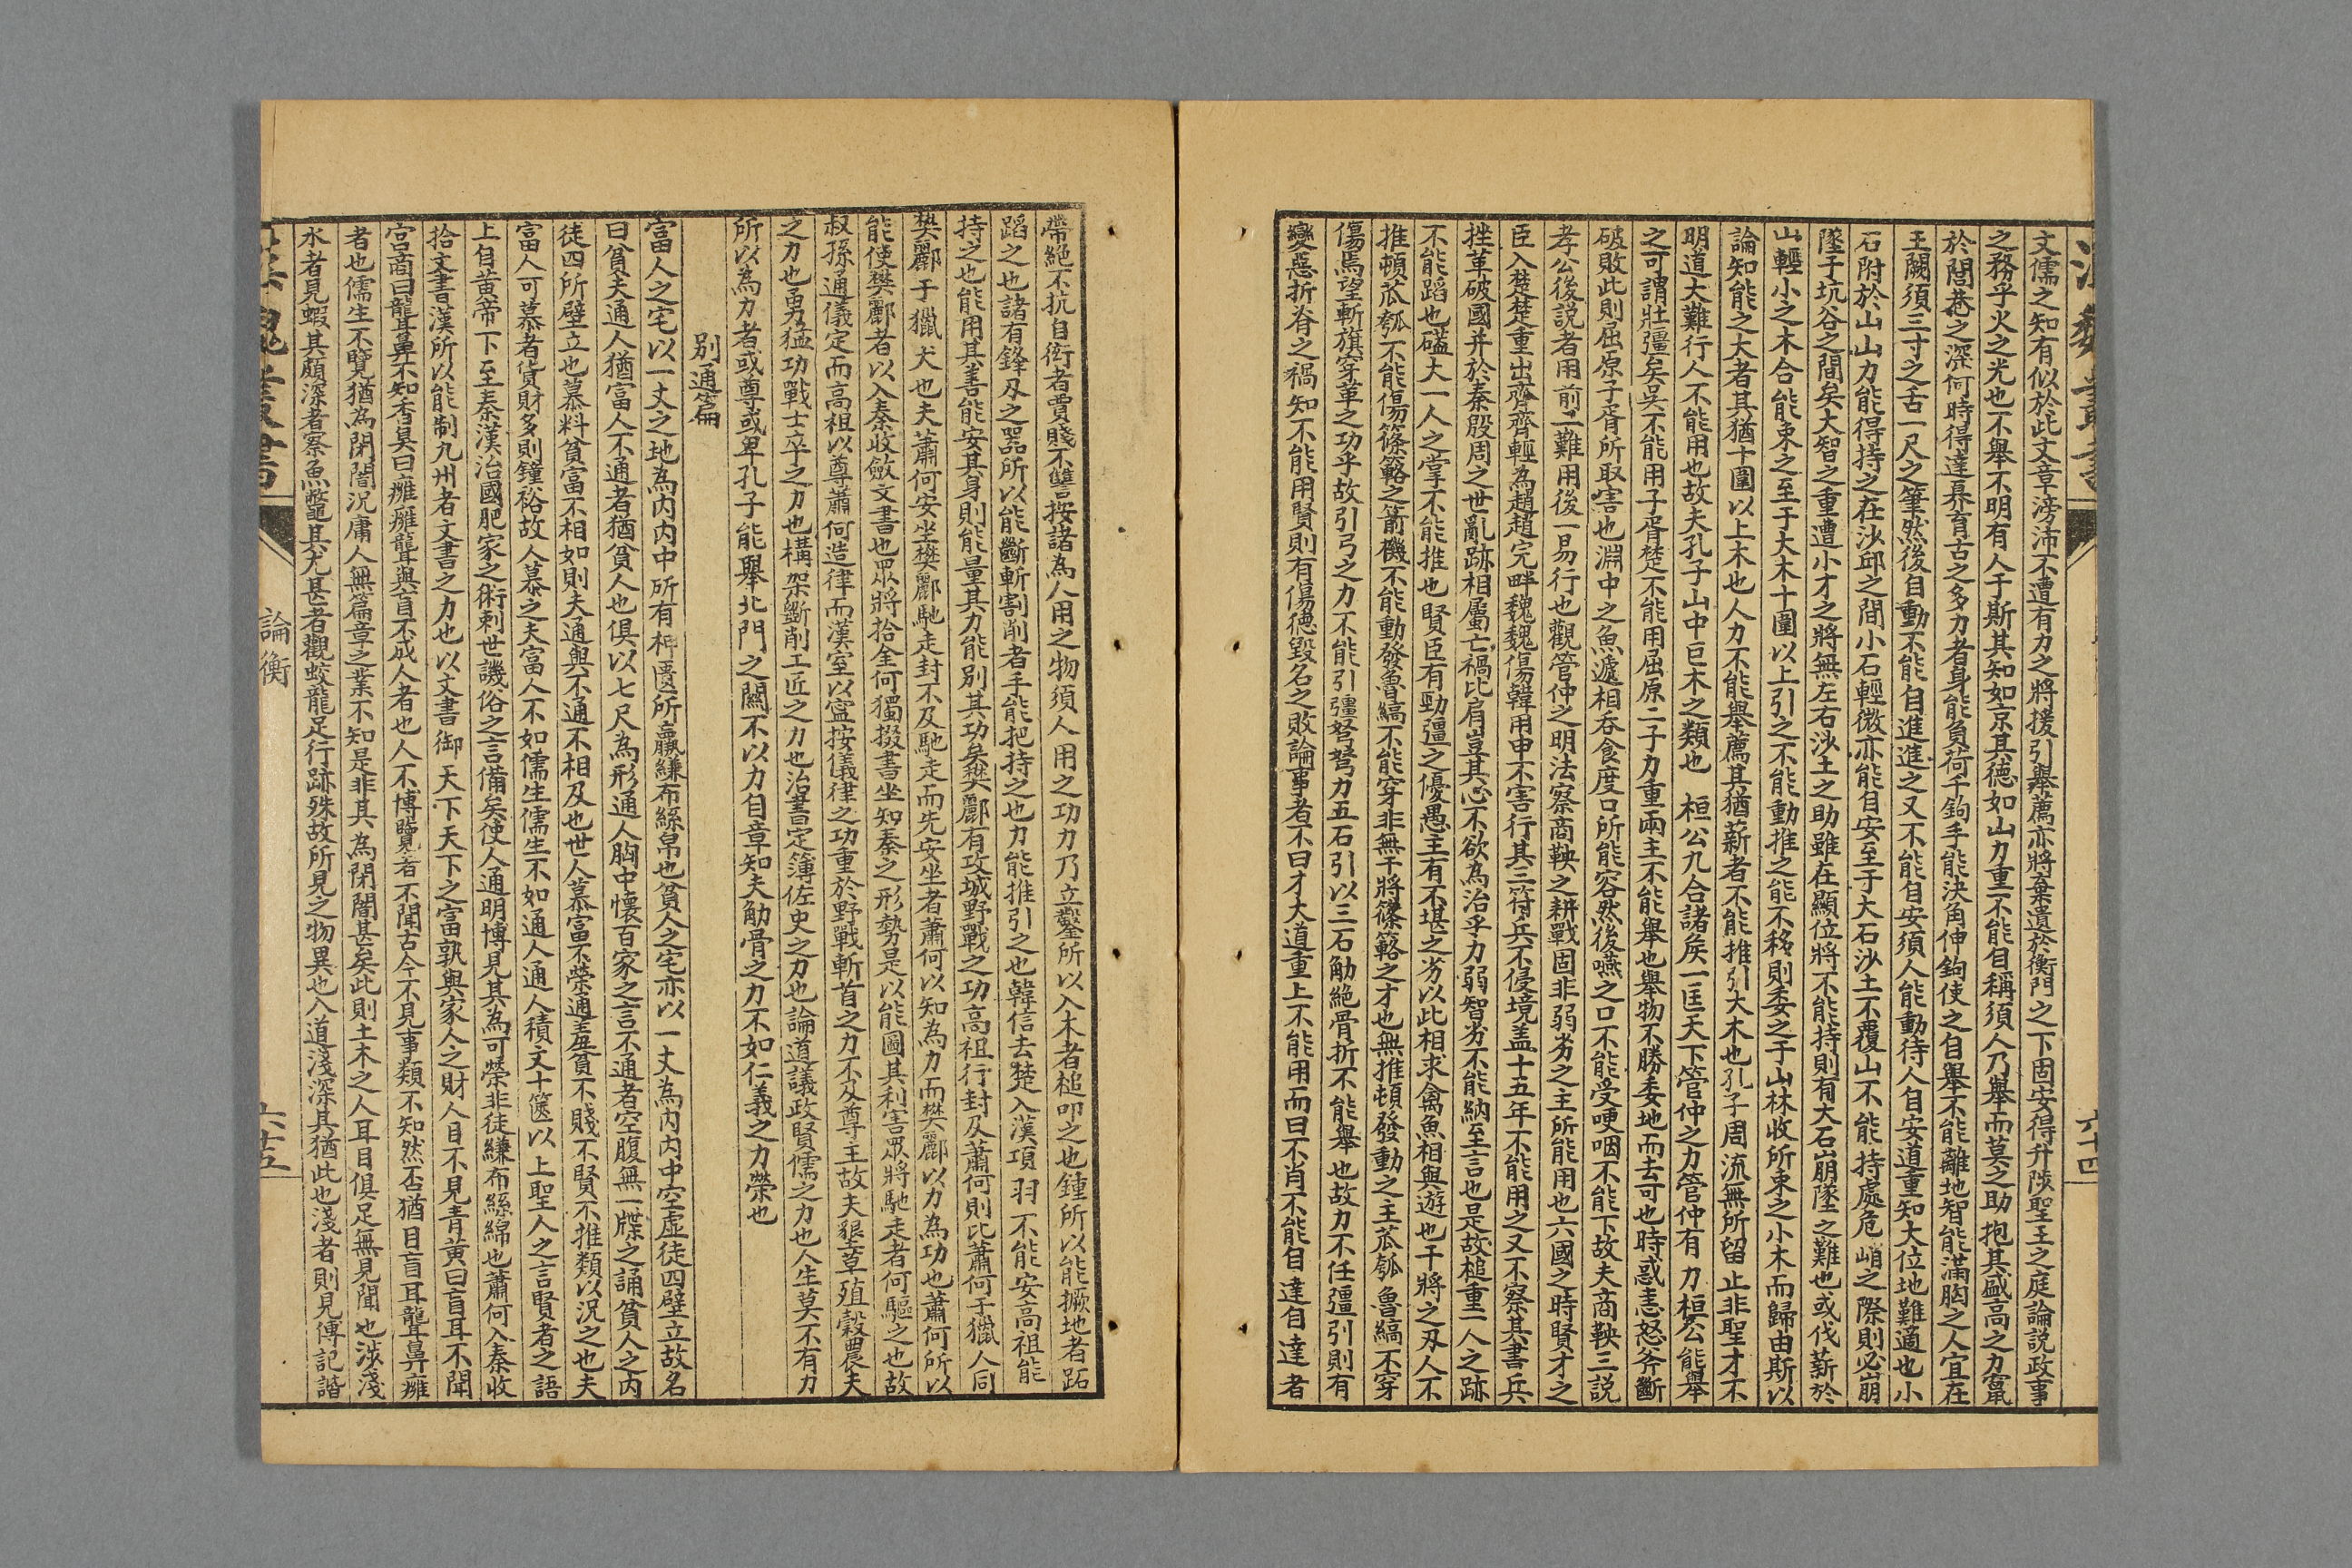 文儒之知有似於此文章滂沛不遭有力之將援引舉薦亦將棄遺於衡門之下固安得升陟聖王之庭論説政事
之務乎火之光也不舉不明有人于斯其知如京其德如山力重不能自稱須人乃舉而莫之助抱其盛高之力竄
於閭巷之深何時得達奡育古之多力者身能負荷千鈞手能決角伸鉤使之自舉不能離地智能滿胸之人宜在
王闕須三寸之舌一尺之筆然後自動不能自進進之又不能自安須人能動待人自安道重知大位地難適也小
石附於山山力能得持之在沙邱之間小石輕微亦能自安至于大石沙土不覆山不能持處危峭之際則必崩
墜于坑谷之間矣大智之重遭小才之將無左右沙土之助雖在顯位將不能持則有大石崩墜之難也或伐薪於
山輕小之木合能束之至于大木十圍以上引之不能動推之能不移則委之于山林收所束之小木而歸由斯以
論知能之大者其猶十圍以上木也人力不能舉薦其猶薪者不能推引大木也孔子周流無所留止非聖才不
明道大難行人不能用也故夫孔子山中巨木之類也 桓公九合諸矦一匡天下管仲之力管仲有力桓公能舉
之可謂壯彊矣吳不能用子胥楚不能用屈原二子力重兩主不能舉也舉物不勝委地而去可也時或恚怒斧斷
破敗此則屈原子胥所取害也淵中之魚遞相吞食度口所能容然後嚥之口不能受哽咽不能下故夫商鞅三説
孝公後説者用前二難用後一易行也觀管仲之明法察商鞅之耕戰固非弱劣之主所能用也六國之時賢才之
臣入楚楚重出齊齊輕為趙趙完畔魏魏傷韓用申不害行其三符兵不侵境盖十五年不能用之又不察其書兵
挫軍破國并於秦殷周之世亂跡相屬亡禍比肩豈其心不欲為治乎力弱智劣不能納至言也是故槌重一人之跡
不能蹈也磕大一人之掌不能推也賢臣有勁彊之優愚主有不堪之劣以此相求禽魚相與遊也干將之刃人不
推頓苽瓠不能傷篠簵之箭機不能動發魯縞不能穿非無干將篠簵之才也無推頓發動之主苽瓠魯縞不穿
傷焉望斬旗穿革之功乎故引弓之力不能引彊弩弩力五石引以三石觔絶骨折不能舉也故力不任彊引則有
變惡折脊之禍知不能用賢則有傷德毀名之敗論事者不曰才大道重上不能用而曰不肖不能自達自達者
帶絶不抗自衒者賈賤不讐按諸為人用之物須人用之功力乃立鑿所以入木者槌叩之也鍤所以能撅地者跖
蹈之也諸有鋒刃之器所以能斷斬割削者手能把持之也力能推引之也韓信去楚入漢項羽不能安高祖能
持之也能用其善能安其身則能量其力能別其功矣樊酈有攻城野戰之功高祖行封及蕭何則比蕭何于獵人同
樊酈于獵犬也夫蕭何安坐樊酈馳走封不及馳走而先安坐者蕭何以知為力而樊酈以力為功也蕭何所以
能使樊酈者以入秦收斂文書也眾將拾金何獨掇書坐知秦之形勢是以能圖其利害眾將馳走者何驅之也故
叔孫通儀定而高祖以尊蕭何造律而漢室以寍按儀律之功重於野戰斬首之力不及尊主故夫墾草殖穀農夫
之力也勇猛功戰士卒之力也構架斲削工匠之力也治書定簿佐史之力也論道議政賢儒之力也人生莫不有力
所以為力者或尊或卑孔子能舉北門之關不以力自章知夫觔骨之力不如仁義之力榮也
別通篇
富人之宅以一丈之地為内内中所有柙匱所羸縑布絲帛也貧人之宅亦以一丈為内内中空虛徒四壁立故名
曰貧夫通人猶富人不通者猶貧人也俱以七尺為形通人胸中懷百家之言不通者空腹無一牒之誦貧人之内
徒四所壁立也慕料貧富不相如則夫通與不通不相及也世人慕富不榮通羞貧不賤不賢不推類以況之也夫
富人可慕者貨財多則鐘裕故人慕之夫富人不如儒生儒生不如通人通人積文十篋以上聖人之言賢者之語
上自黄帝下至秦漢治國肥家之術刺世譏俗之言備矣使人通明博見其為可榮非徒縑布絲綿也蕭何入秦收
拾文書漢所以能制九州者文書之力也以文書御天下天下之富孰與家人之財人目不見青黄曰盲耳不聞
宮商曰聾鼻不知香臭曰癰癰聾與盲不成人者也人不博覽者不聞古今不見事類不知然否猶目盲耳聾鼻癰
者也儒生不覽猶為閉闇況庸人無篇章之業不知是非其為閉闇甚矣此則土木之人耳目俱足無見聞也涉淺
水者見蝦其頗深者察魚鼈其尤甚者觀蛟龍足行跡殊故所見之物異也入道淺深其猶此也淺者則見傳記諧
漢魏叢書
論衡
六十五
六十四